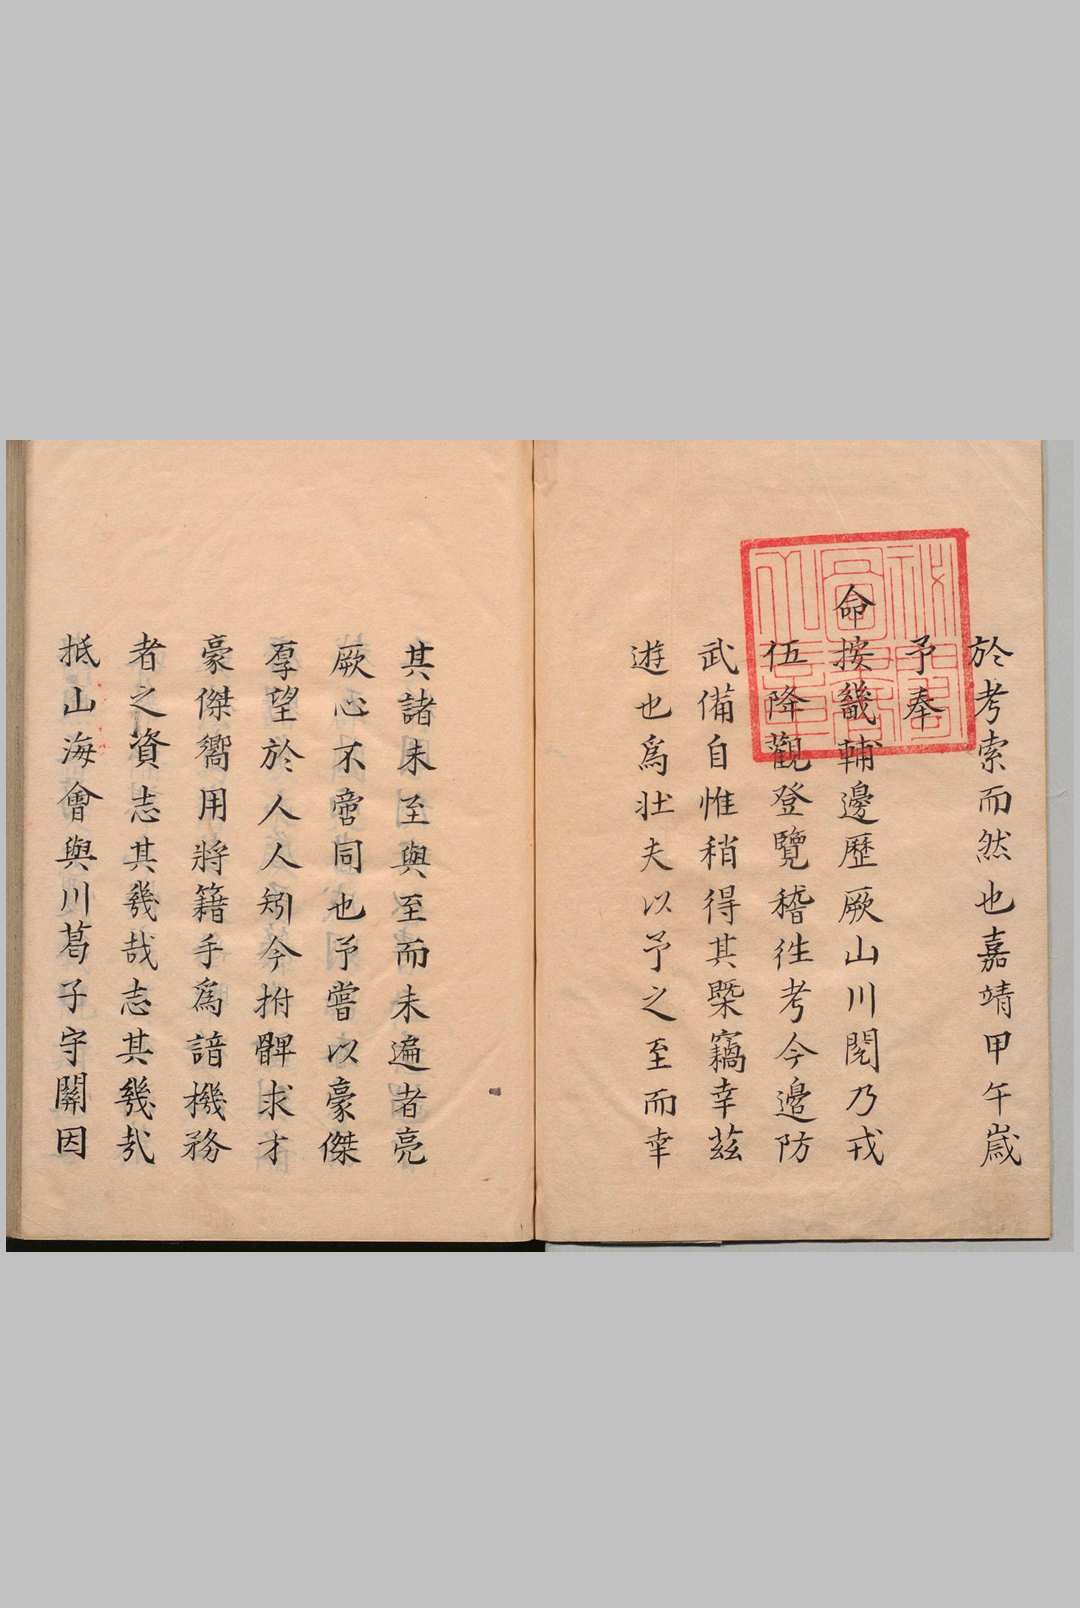 於考索而然也嘉靖甲午歲
予奉
命按畿輔邊歷厥山川閱乃戎
伍降觀登覽稽徃考今邊防
武備自惟稍得其槩竊幸茲
遊也爲壯夫以予之至而幸
其諸未至與至而未遍者亮
厥心不啻同也予嘗以豪傑
羣望於人人矧今拊髀求才
豪傑嚮用將籍手爲諳機務
者之資志其幾哉志其幾哉
抵山海會與川葛子守關因